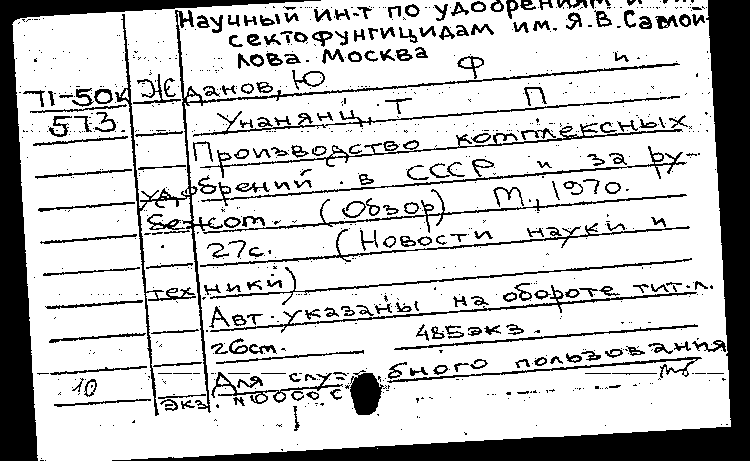 Научный ин-т по удобрениям и ин-
сектофунгицидам им. Я.В.Самой-
лова. Москва
П-50к Жданов, Ю Ф и
513. Унанянц, Т П
Производство комплексных
удобрений в СССР и за ру-
бежом. (Обзор) М., 1970.
27с. (Новости науки и
техники)
Авт. указаны на обороте тит.л.
26см. 485экз.
10 Для служебного пользования
экз. №0000